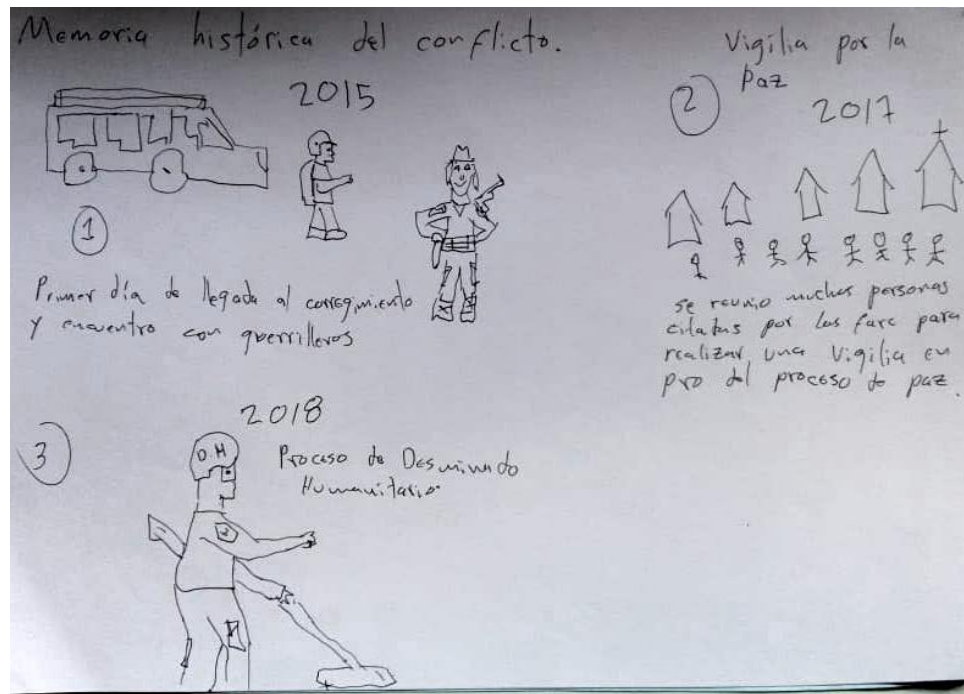 Memoria histórica del conflicto.
2015
1
Primer día de llegada al corregimiento
y encuentro con guerrilleros
Vigilia por la
Paz
2
2017
se reunio muchas personas
citadas por las farc para
realizar una Vigilia en
pro del proceso de paz.
3
2018
D.H
Proceso de Desminado
Humanitario.